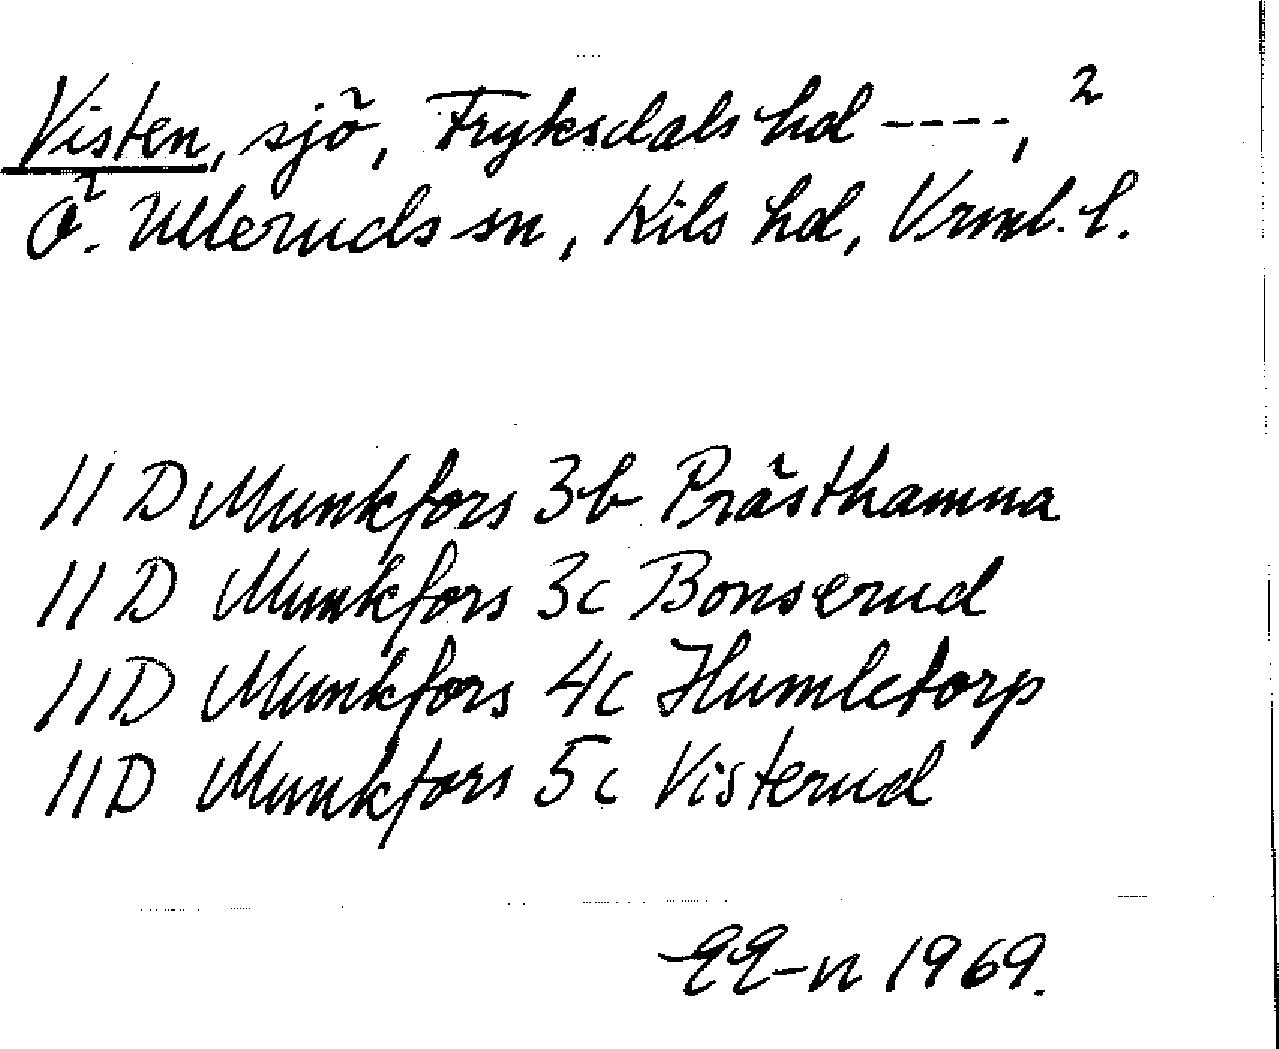 Visten, sjö, Fryksdals hd ----, 2
Ö. Ulleruds sn, Kils hd, Vrml. l.
11 D Munkfors 3b Prästhamna
11 D Munkfors 3c Bonserud
11D Munkfors 4c Humletorp
11D Munkfors 5c Visterud
EE-n 1969.